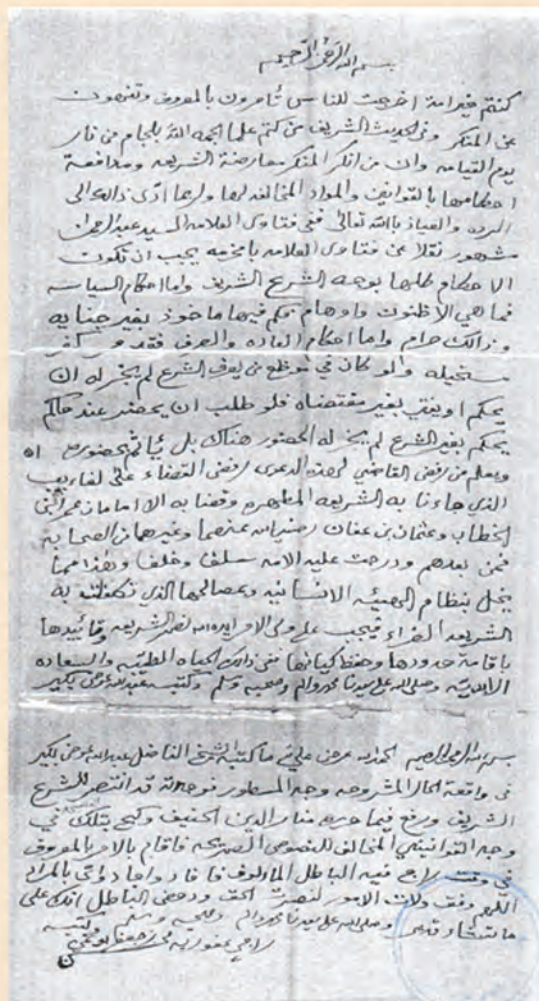 بسم الله الرحمن الرحيم
كنتم خير امة اخرجت للناس تأمرون بالمعروف وتنهون
عن المنكر وفي الحديث الشريف من كتم علما الجمه الله بلجام من نار
يوم القيامه وان من انكر المنكر معارضة الشريعه ومدافعة
احكامها بالقوانين والمواد المخالفه لها ولربما ادى ذالك الى
الرده والعياذ بالله تعالى ففي فتاوى العلامه السيد عبدالرحمن
مشهور نقلا عن فتاوى العلامه بامخرمه يجب ان تكون
الاحكام كلها بوجه الشرع الشريف واما احكام السياسه
فما هي الا ظنون واوهام فكم فيها ماخوذ بغير جنايه
وذالك حرام واما احكام العاده والعرف فقد مر كفر
مستحيله ولو كان في موضع من يعرف الشرع لم يجز له ان
يحكم او يفتي بغير مقتضاه فلو طلب ان يحضر عند حاكم
يحكم بغير الشرع لم يجز له الحضور هناك بل يأثم بحضوره اه
ويعلم من رفض القاضي لهذه الدعوى رفض القضاء على
الذي جاءنا به الشريعه المطهره وقضا به الامامان عمر ابن
الخطاب وعثمان بن عفان رضي الله عنهما وغيرهما من الصحابة
فمن بعدهم ودرجت عليه الامه سلفا وخلفا وهذا مما
يخل بنظام الهيئه الانسانيه ومصالحها الذي تكفلت به
الشريعه الغراء فيجب على ولي الامر ايده الله نصر الشريعه وتأييدها
باقامة حدودها وحفظ كيانها ففي ذالك الحياه الطيبه والسعاده
الابديه وصلى الله على سيدنا محمد واله وصحبه وسلم وكتبه عبدالله عوض بكير
بسم الله الرحمن الرحيم الحمدلله عرض علي ما كتبه الشيخ الفاضل عبدالله عوض بكير
في واقعة الحال المشروحه وجه المسطور فوجدته قد انتصر للشرع
الشريف ورفع فيما حرره منار الدين الحنيف وكبح بتلك في
وجه القوانين المخالف للنصوص الصريحه فاقام بالامر بالمعروف
في وقت راج فيه الباطل المالوف فافاد واجاد وأتى بالمراد
اللهم وفق ولات الامور لنصرت الحق ودحض الباطل انك على
ما تشاء قدير وصلى الله على سيدنا محمد واله وصحبه وسلم وكتبه
راجي عفو ربه